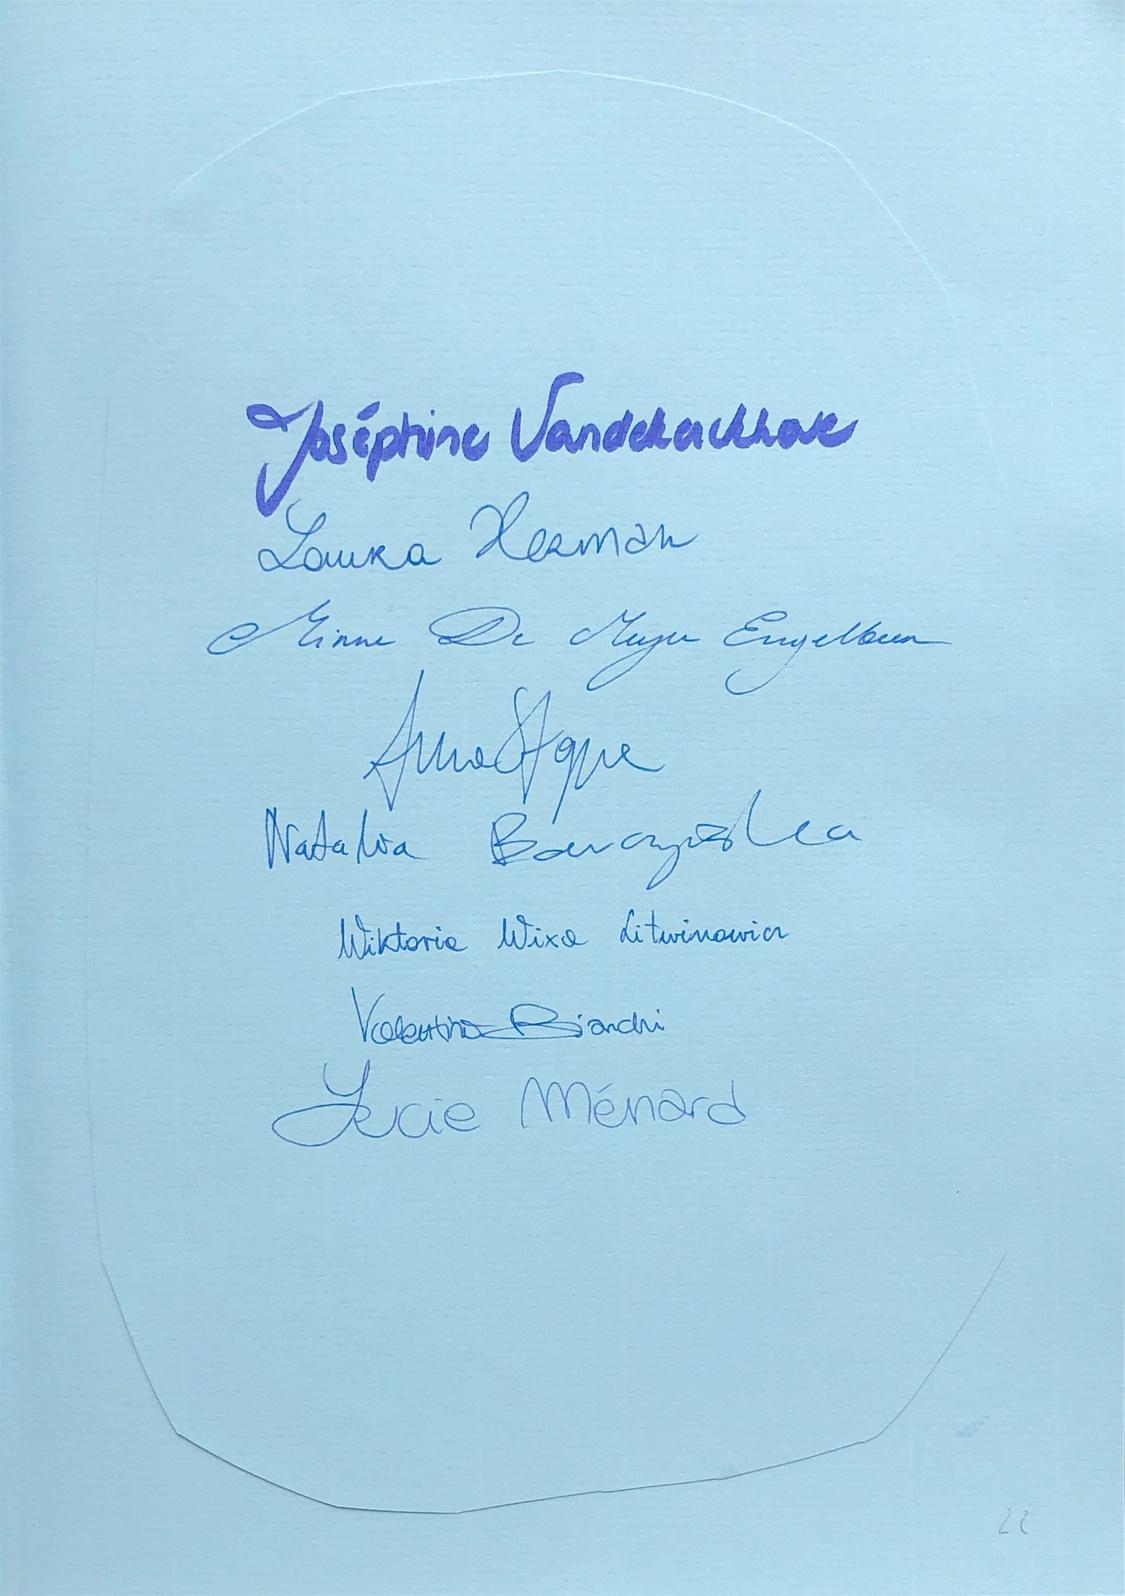 Joséphine Vandekerckhove
Laura Herman
Minne De Meyer Engelbeen
Anna Stoppe
Natalia Barczyńska
Wiktoria Wixa Litwinowicz
Valentina Bianchi
Lucie Ménard
22